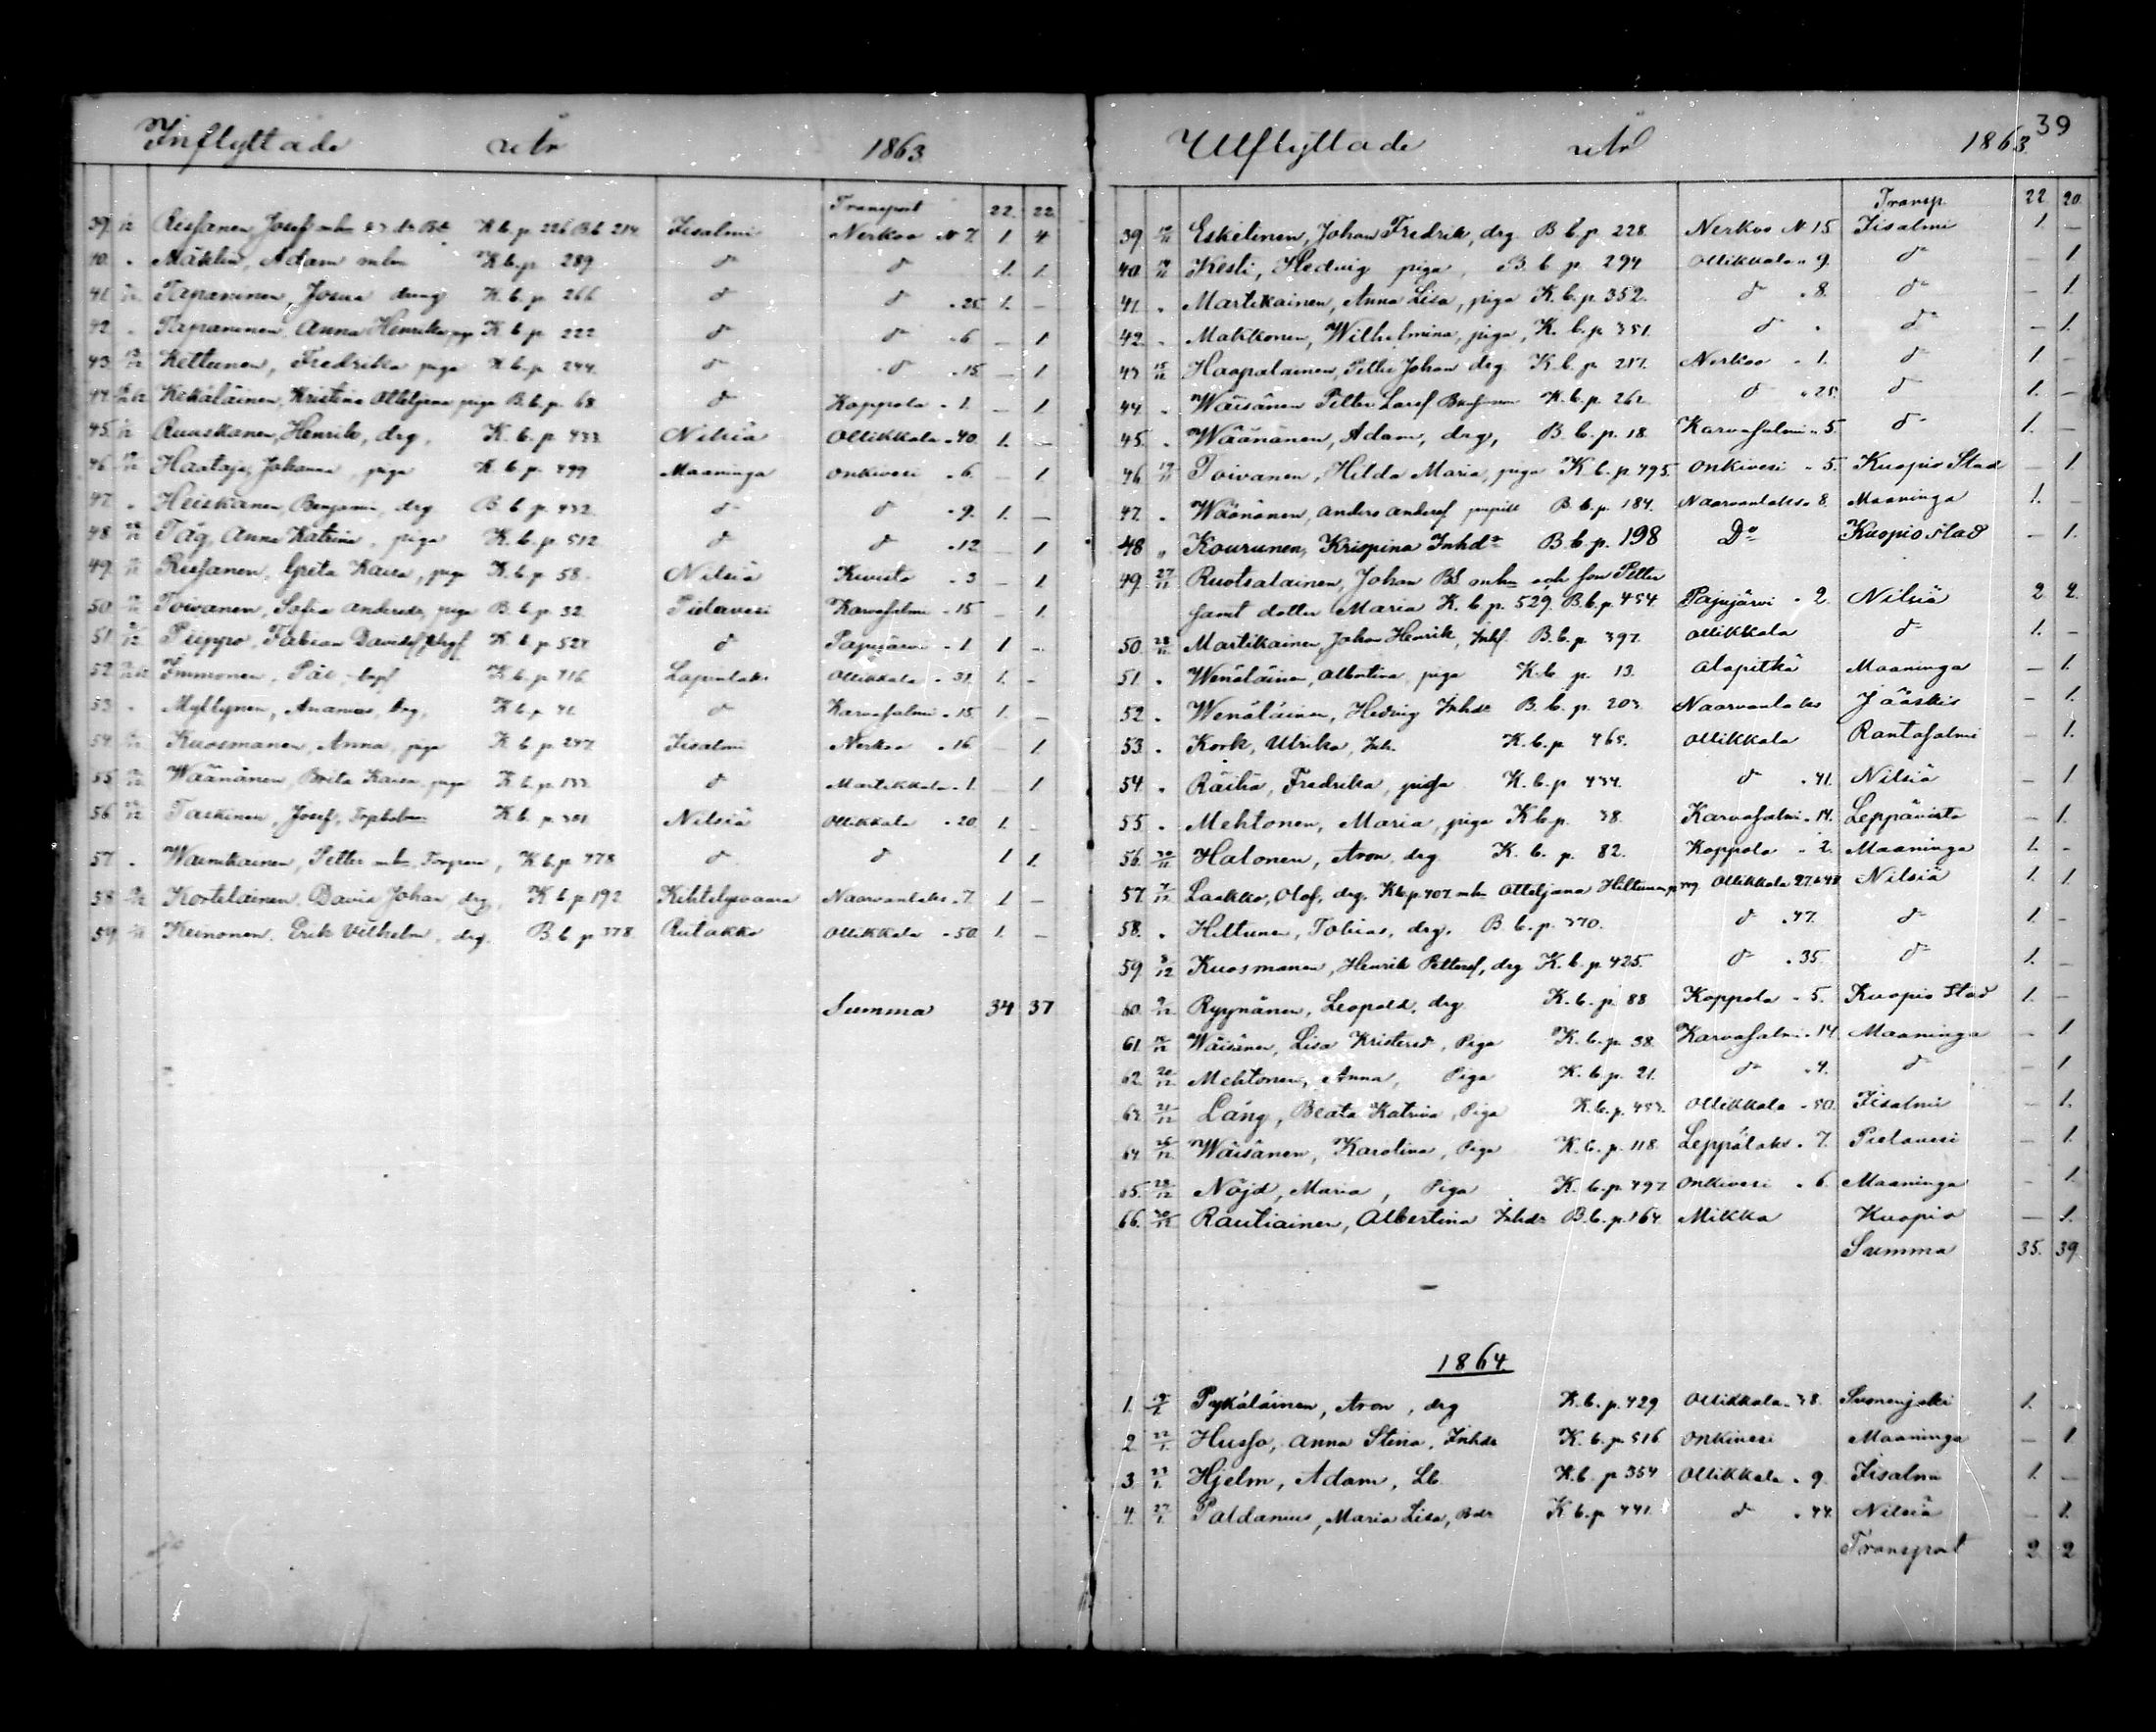 39
Inflyttade År 1863
Transport 22. 22
39. Rissanen, Josef mhu K.b.p. 226 B.b. 214. Iisalmi Nerkoo N 7. 1 4
40. " Mäklin, Adam mhu K.b.p. 289 d:o d:o 1. 1.
41. Tapaninen, Josua dräng K.b.p. 266 d:o d:o " 25. 1. —
42. " Tapaninen, Anna Henrika K.b.p. 222 d:o d:o " 6 — 1
43. Kettunen, Fredrika piga K.b.p. 244. d:o d:o " 15. — 1
44. Kekäläinen, Kristina Ottiljana piga B.b.p. 68 d:o Koppola " 1. — 1
45. Ruuskanen, Henrik, drg, K.b.p. 433 Nilsiä Ollikkala " 40. 1. —
46. Haataja, Johanna, piga K.b.p. 499 Maaninga Onkivesi " 6. — 1
47. " Heiskanen, Benjamin, drg B.b.p. 432. d:o d:o " 9. 1. —
48. Täg, Anna Katrina, piga K.b.p. 512 d:o d:o " 12 — 1
49. Rissanen, Greta Kaisa, piga K.b.p. 58. Nilsiä Kivisto " 3 — 1
50. Toivanen, Sofia Andersdr, piga B.b.p. 32. Pielavesi Karvasalmi " 15 — 1.
51. Pieppo, Fabian Davidsf, K.b.p. 527 d:o Pajujärvi " 1 1 —
52. Immonen, Pål, K.b.p. 416. Lapinlaks Ollikkala " 31. 1. —
53. " Myllynen, Ananias, drg, K.b.p. 41. d:o Karvasalmi " 15. 1. —
54. Kuosmanen, Anna, piga K.b.p. 247. Iisalmi Nerkoo " 16 — 1
55. Wäänänen, Brita Kaisa, piga K.b.p. 133. d:o Martikkala " 1. — 1
56. Taskinen, Josef, K.b.p. 301 Nilsiä Ollikkala " 20. 1. —
57. " Wainikainen, Petter mhu, K.b.p. 478 d:o d:o 1 1.
58. Kortelainen, David Johan, drg, K.b.p. 192 Kihtelysvaara Naarvanlaks " 7. 1 —
59. Keinonen, Erik Vilhelm, drg. B.b.p. 378. Rutakko Ollikkala " 50. 1. —
Summa 34 37
Utflyttade År 1863.
Transp. 22 20.
39 Eskelinen, Johan Fredrik, drg. B.b.p. 228. Nerkoo N 15 Iisalmi 1. —
40. Kesti, Hedvig piga, B.b.p. 294 Ollikkala " 9. d:o — 1
41. " Martikainen, Anna Lisa, piga K.b.p. 352. d:o " 8. d:o — 1.
42. " Makkonen, Wilhelmina, piga, K.b.p. 351. d:o " d:o — 1.
43 15/11 Haapalainen, Petter Johan drg. K.b.p. 217. Nerkoo " 1. d:o 1 —
44. " Wäisänen Petter Larsf K.b.p. 262. d:o " 25. d:o 1. —
45. " Wäänänen, Adam, drg, B.b.p. 18. Karvasalmi " 5. d:o 1. —
46. 19/11 Toivanen, Hilda Maria, piga K.b.p. 495. Onkivesi " 5. Kuopio Stad — 1.
47. " Wäänänen, Anders Andersf pupill B.b.p. 184. Naarvanlaks " 8. Maaninga 1. —
48 " Kourunen, Krispina Inhd:r B.b.p. 198 D:o Kuopio stad — 1.
49. 27/11 Ruotsalainen, Johan BS. mhu och son Petter
samt dotter Maria K.b.p. 529. B.b.p. 454. Pajujärvi " 2. Nilsiä 2 2.
50. 28/11 Martikainen, Johan Henrik, Inhf. B.b.p. 397. Ollikkala d:o 1. —
51. " Wenäläinen, Albertina, piga K.b.p. 13. Alapitkä Maaninga — 1.
52. " Wenäläinen, Hedvig Inhdr B.b.p. 203. Naarvanlaks Jääskis — 1.
53. " Kork, Ulrika, Inh. K.b.p. 465. Ollikkala Rantasalmi — 1.
54. " Räihä, Fredrika, piga K.b.p. 434. d:o " 41. Nilsiä — 1
55. " Mehtonen, Maria, piga K.b.p. 38. Karvasalmi " 14. Leppävirta — 1.
56. 30/11 Halonen, Aron, drg. K.b.p. 82. Koppola " 2. Maaninga 1. —
57. 7/12 Laakko, Olof, drg. K.b.p. 407. mhu Ottiljana Hiltunen Ollikkala 27 & 48 Nilsiä 1. 1.
58. " Hiltunen, Tobias, drg. B.b.p. 370. d:o " 47. d:o 1. —
59. 8/12 Kuosmanen, Henrik Pettersf, drg K.b.p. 425. d:o " 35. d:o 1. —
60. 9/12 Ryynänen, Leopold, drg. K.b.p. 88 Koppola " 5. Kuopio Stad 1. —
61. Wäisänen, Lisa Kristersdr, Piga K.b.p. 38. Karvasalmi " 14. Maaninga — 1
62. 20/12 Mehtonen, Anna, Piga K.b.p. 21. d:o " 4. d:o — 1
63. 21/12 Läng, Beata Katrina, Piga K.b.p. 453. Ollikkala " 50. Iisalmi — 1.
64. 26/12 Wäisänen, Karolina, Piga K.b.p. 118. Leppälaks " 7. Pielavesi — 1.
65. 28/12 Nöjd, Maria, Piga K.b.p. 497. Onkivesi " 6. Maaninga — 1.
66. 30/12 Rautiainen, Albertina Inhdr B.b.p. 164. Mikka Kuopio — 1.
Summa 35. 39
1864.
1. Pykäläinen, Aron, drg K.b.p. 429 Ollikkala " 38. Suonenjoki 1. —
2 22/1. Husso, Anna Stina, Inhdr K.b.p. 516 Onkivesi Maaninga — 1.
3. 23/1. Hjelm, Adam, Lb. K.b.p. 354 Ollikkala " 9. Iisalmi 1. —
4. 27/1. Paldanius, Maria Lisa, K.b.p. 441. d:o " 44. Nilsiä — 1.
Transport 2 2